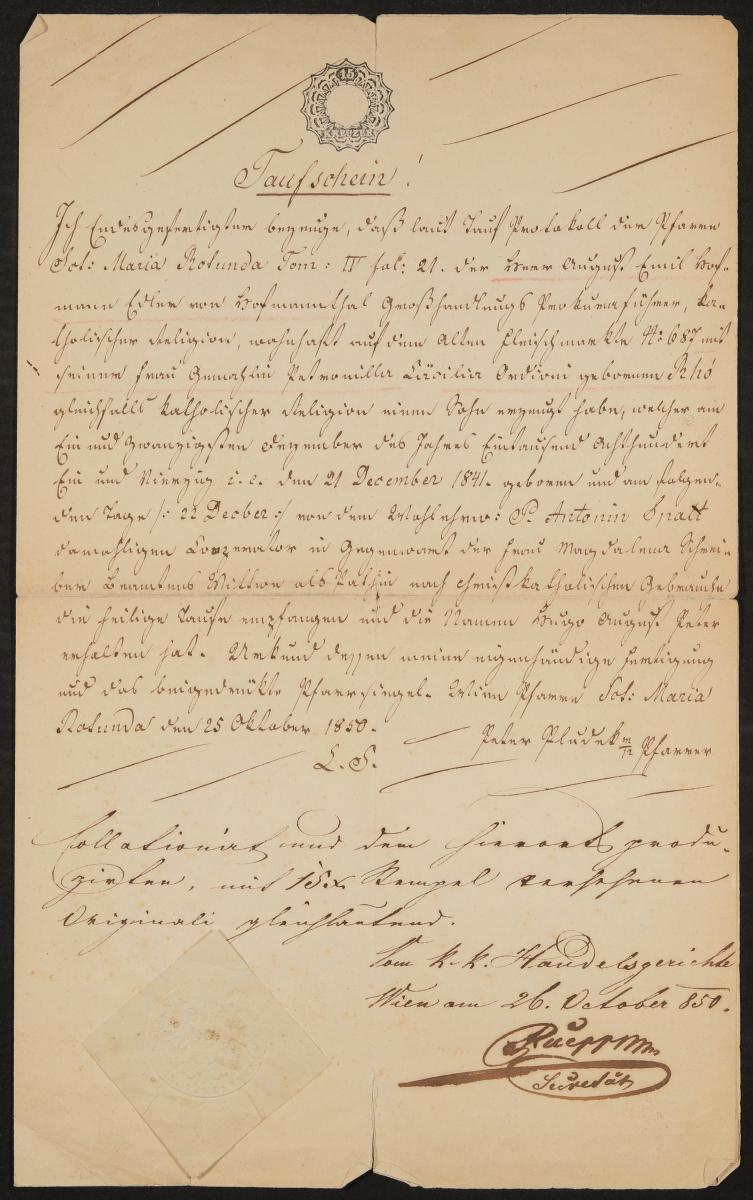 15
KREUZER
Taufschein!
Ich Endesgefertigter bezeuge, daß laut Tauf Protokoll der Pfarre
Sct: Maria Rotunda Tom: IV fol: 21. der Herr August Emil Hof-
mann Edler von Hofmannthal Großhandlungs Prokuraführer, ka-
tholischer Religion, wohnhaft auf dem Alten Fleischmarkte No 687 mit
seiner Frau Gemahlin Petronilla Cäcilia Ordioni geborenen Rhó
gleichfalls katholischer Religion einen Sohn erzeugt habe, welcher am
Ein und Zwanzigsten Dezember des Jahres Eintausend Achthundert
Ein und Vierzig i. e. den 21 December 1841. geboren und am folgen-
den Tage /: 22 Decber :/ von dem Wohlehrw: P. Antonin Spatt
damahligen Cooperator in Gegenwart der Frau Magdalena Schrei-
ber Beamtens Wittwe als Pathin nach christkatholischen Gebrauche
die heilige Taufe empfangen und die Namen Hugo August Peter
erhalten hat. Urkund dessen meine eigenhändige Fertigung
und das beigedrükte Pfarrsiegel. Wien Pfarre Sct: Maria
Rotunda den 25 Oktober 1850.
Peter Pludek Pfarrer
L. S.
Collationirt und dem hierorts produ-
zirten, mit 15 x Stempel versehenen
Originali gleichlautend.
Vom k. k. Handelsgerichte
Wien am 26. October 850.
Secretär